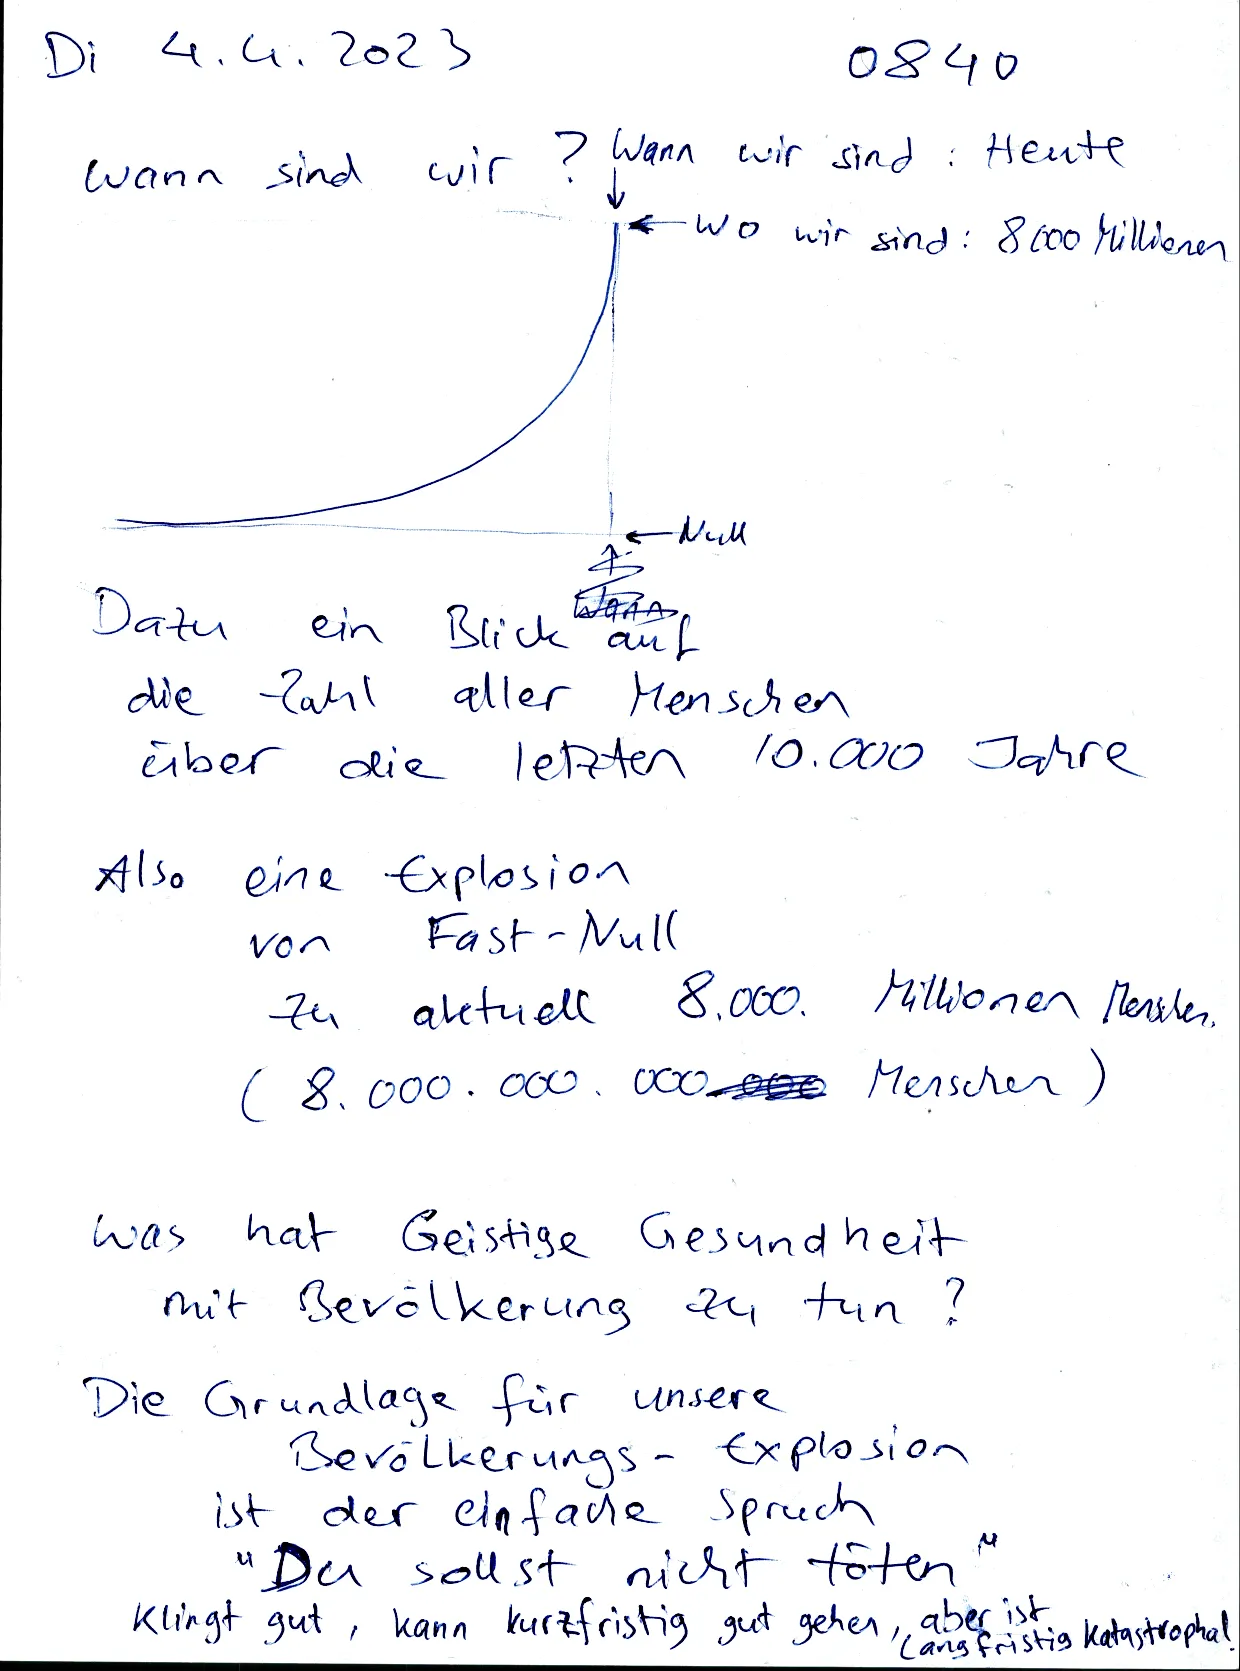 Di 4.4.2023 0840
Wann sind wir? Wann wir sind: Heute
Wo wir sind: 8000 Millionen
Null
Wann
Dazu ein Blick auf
die Zahl aller Menschen
über die letzten 10.000 Jahre
Also eine Explosion
von Fast-Null
zu aktuell 8.000. Millionen Menschen.
(8.000.000.000 000 Menschen)
Was hat Geistige Gesundheit
mit Bevölkerung zu tun?
Die Grundlage für unsere
Bevölkerungs-Explosion
ist der einfache Spruch
"Du sollst nicht töten"
Klingt gut, kann kurzfristig gut gehen, aber ist
langfristig katastrophal.